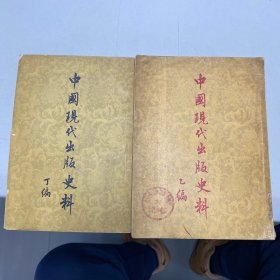 中國現代出版史料
丁編
中國現代出版史料
乙編